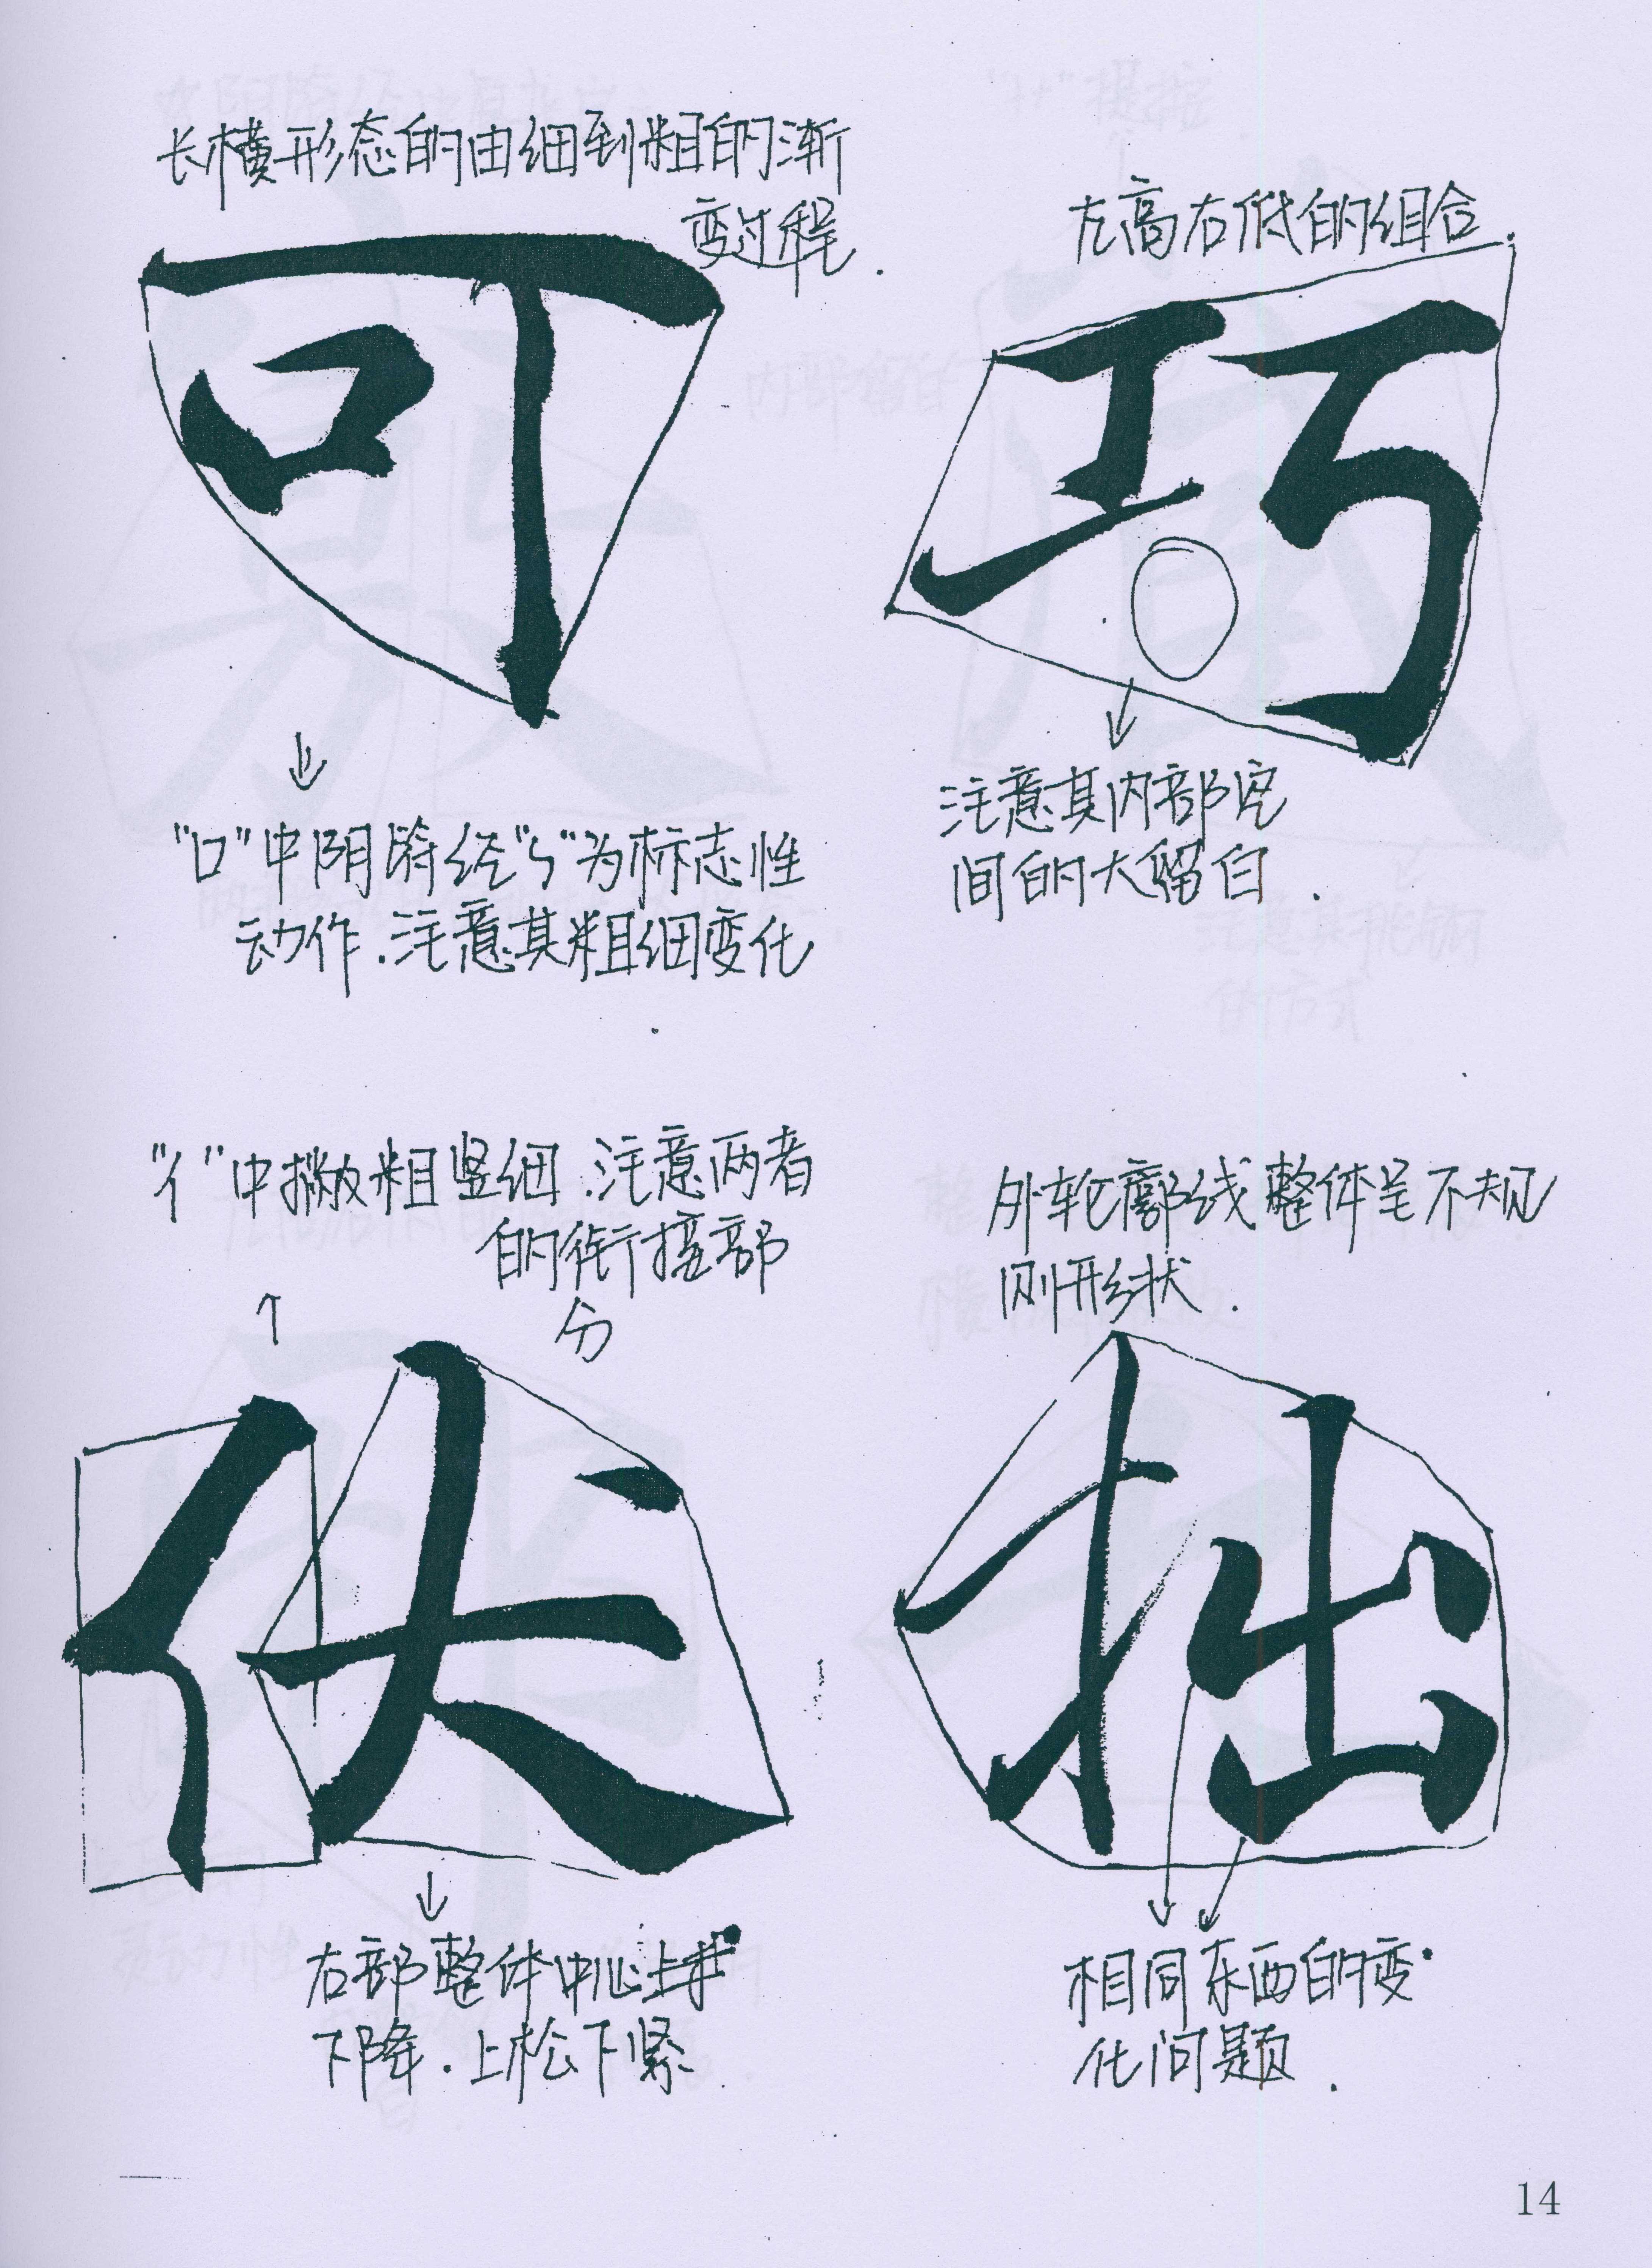 长横形态的由细到粗的渐
变过程.
可
"口"中阴 经"ㄣ"为标志性
动作.注意其粗细变化
左高右低的组合.
巧
注意其内部空
间的大留白.
"亻"中撇粗竖细.注意两者
的衔接部
分
伏
右部整体中心
下降.上松下紧
外轮廓线整体呈不规
则形状.
拙
相同东西的变
化问题.
14